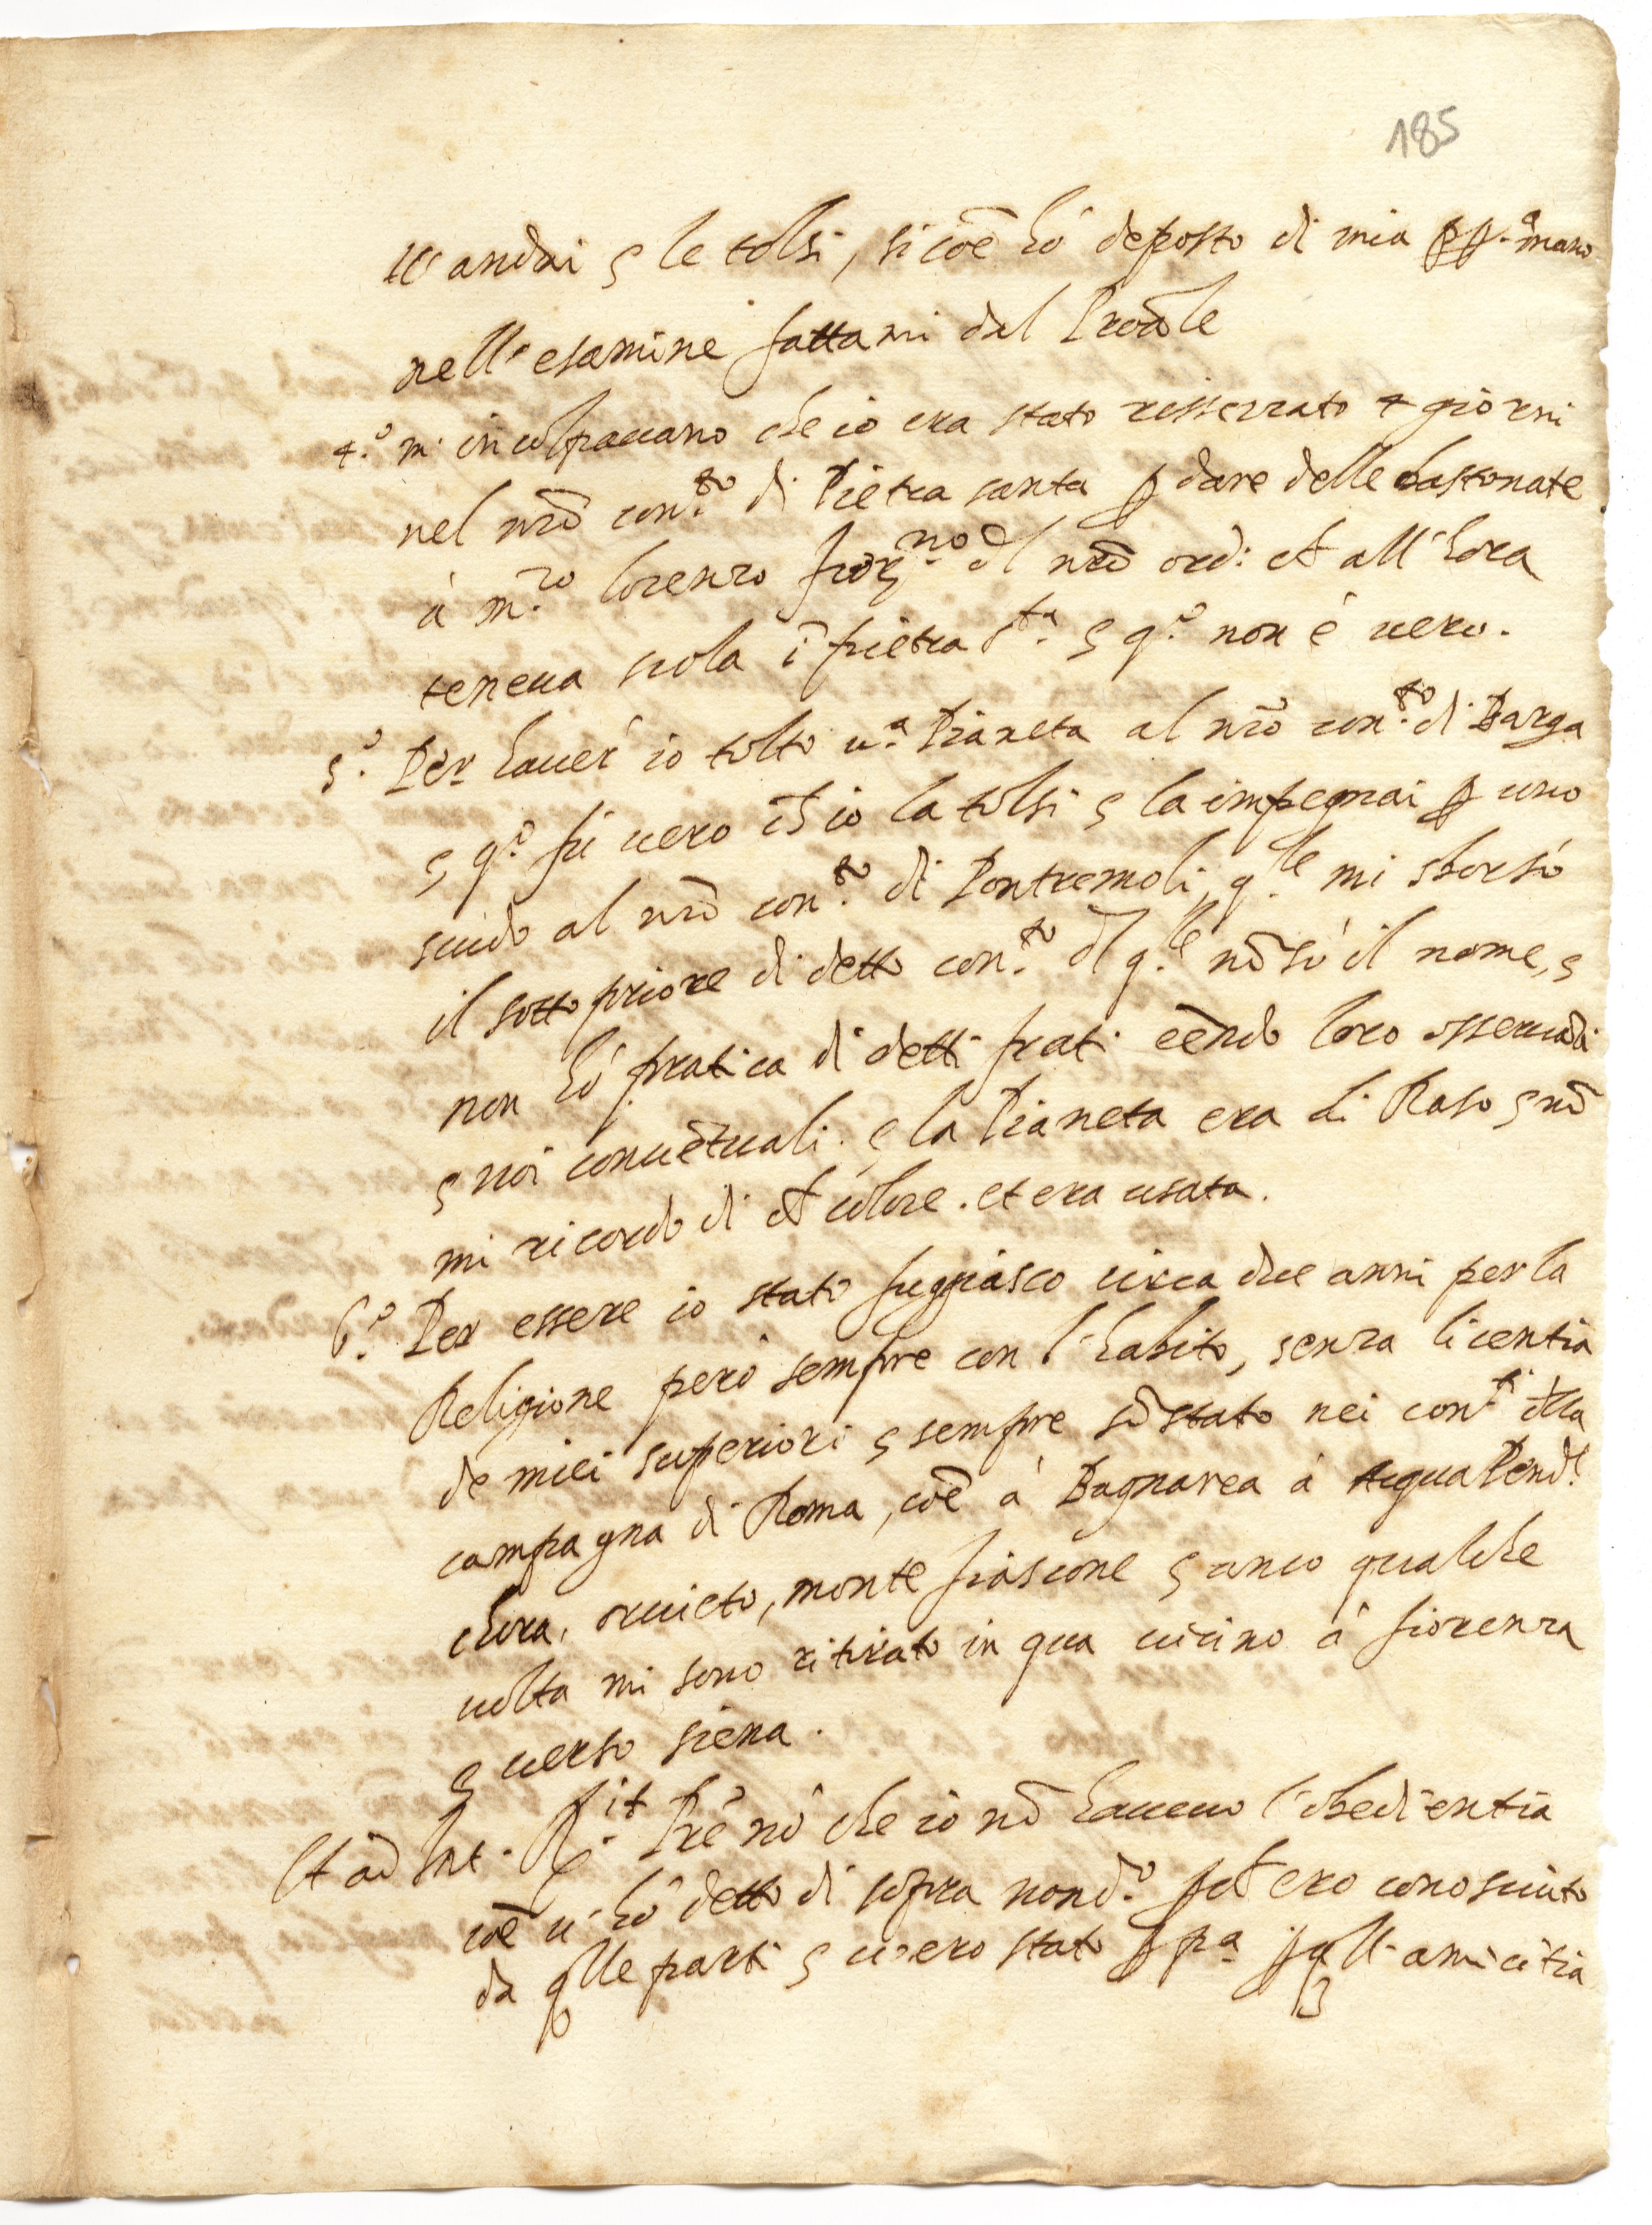 185
vi andai e le tolsi, si coẽ hò deposto di mia pp.ª mano
nell'esamine fattami dal Proãle
4.º m'incolpavano che io era stato risserrato 4 giorni
nel nrõ con.to di Pietra santa p dare delle bastonate
à m.ro lorenzo fior.no dl nrõ ord: et all'hora
teneva scola ĩ pietra S.ta e q.º non è vero.
5.º Per haver io tolto u.ª Pianeta al nrõ con.to di Barga
e q.º fù vero ch io la tolsi e la impegnai p uno
scudo al nrõ con.to di Pontremoli, q.le mi sborsò
il sotto priore di detto con.to dl q.le nõ sò il nome, e
non hò pratica di detti frati eẽndo loro osservãti
e noi convẽtuali. e la Pianeta era di Raso e nõ
mi ricordo di ch colore. et era usata.
6.º Per essere io stato fuggiasco circa due anni per la
Religione però sempre con l'habito, senza licentia
de miei superiori e sempre sõ stato nei con.ti dlla
campagna di Roma, coẽ à Bagnarea à Acqua Pend.e
chora, orvieto, monte fiascone e anco qualche
volta mi sono ritirato in qua vicino à fiorenza
e verso siena.
Et ad Int. R.it Prẽ nò che io nõ havevo l'obedientia
coẽ v'hò detto di sopra nond.º pch ero conosciuto
da qlle parti e v'ero stato p p.ª p qll' amicitia